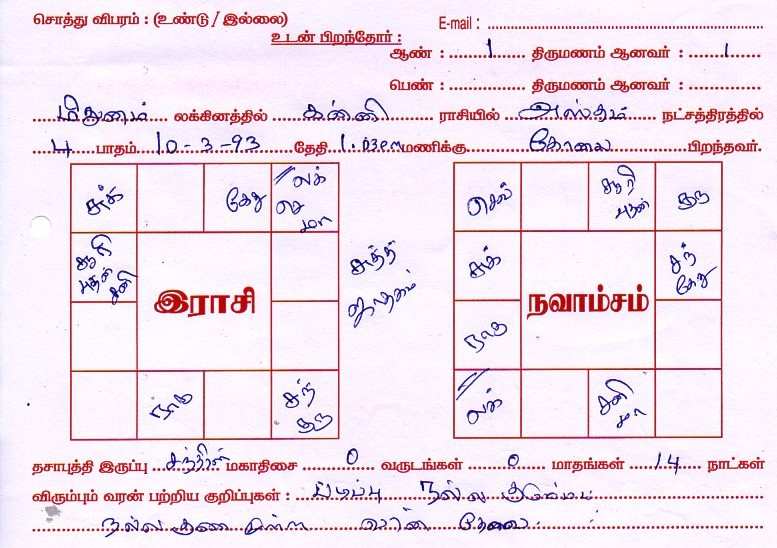 சொத்து விபரம் : (உண்டு / இல்லை)
E-mail :
உடன் பிறந்தோர் :
ஆண் : 1 திருமணம் ஆனவர் : 1
பெண் : திருமணம் ஆனவர் :
மிதுனம் லக்கினத்தில் கன்னி ராசியில் அஸ்தம் நட்சத்திரத்தில்
4 பாதம் 10-3-93 தேதி 1.03PM மணிக்கு கோவை பிறந்தவர்.
சுக் கேது லக்
செ
மா
சூரி
புதன்
சனி
இராசி
சுத்த
ஜாதகம்
ராகு சந்
குரு
செவ் சூரி
புதன் குரு
சுக் சந்
கேது
நவாம்சம்
ராகு
லக் சனி
மா
தசாபுத்தி இருப்பு சந்திரன் மகாதிசை 0 வருடங்கள் 0 மாதங்கள் 14 நாட்கள்
விரும்பும் வரன் பற்றிய குறிப்புகள் : படிப்பு நல்ல குடும்பம்
நல்ல குண முள்ள வரன் தேவை.